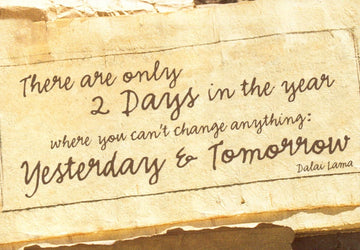 There are only
2 Days in the year
where you can't change anything:
Yesterday & Tomorrow
Dalai Lama